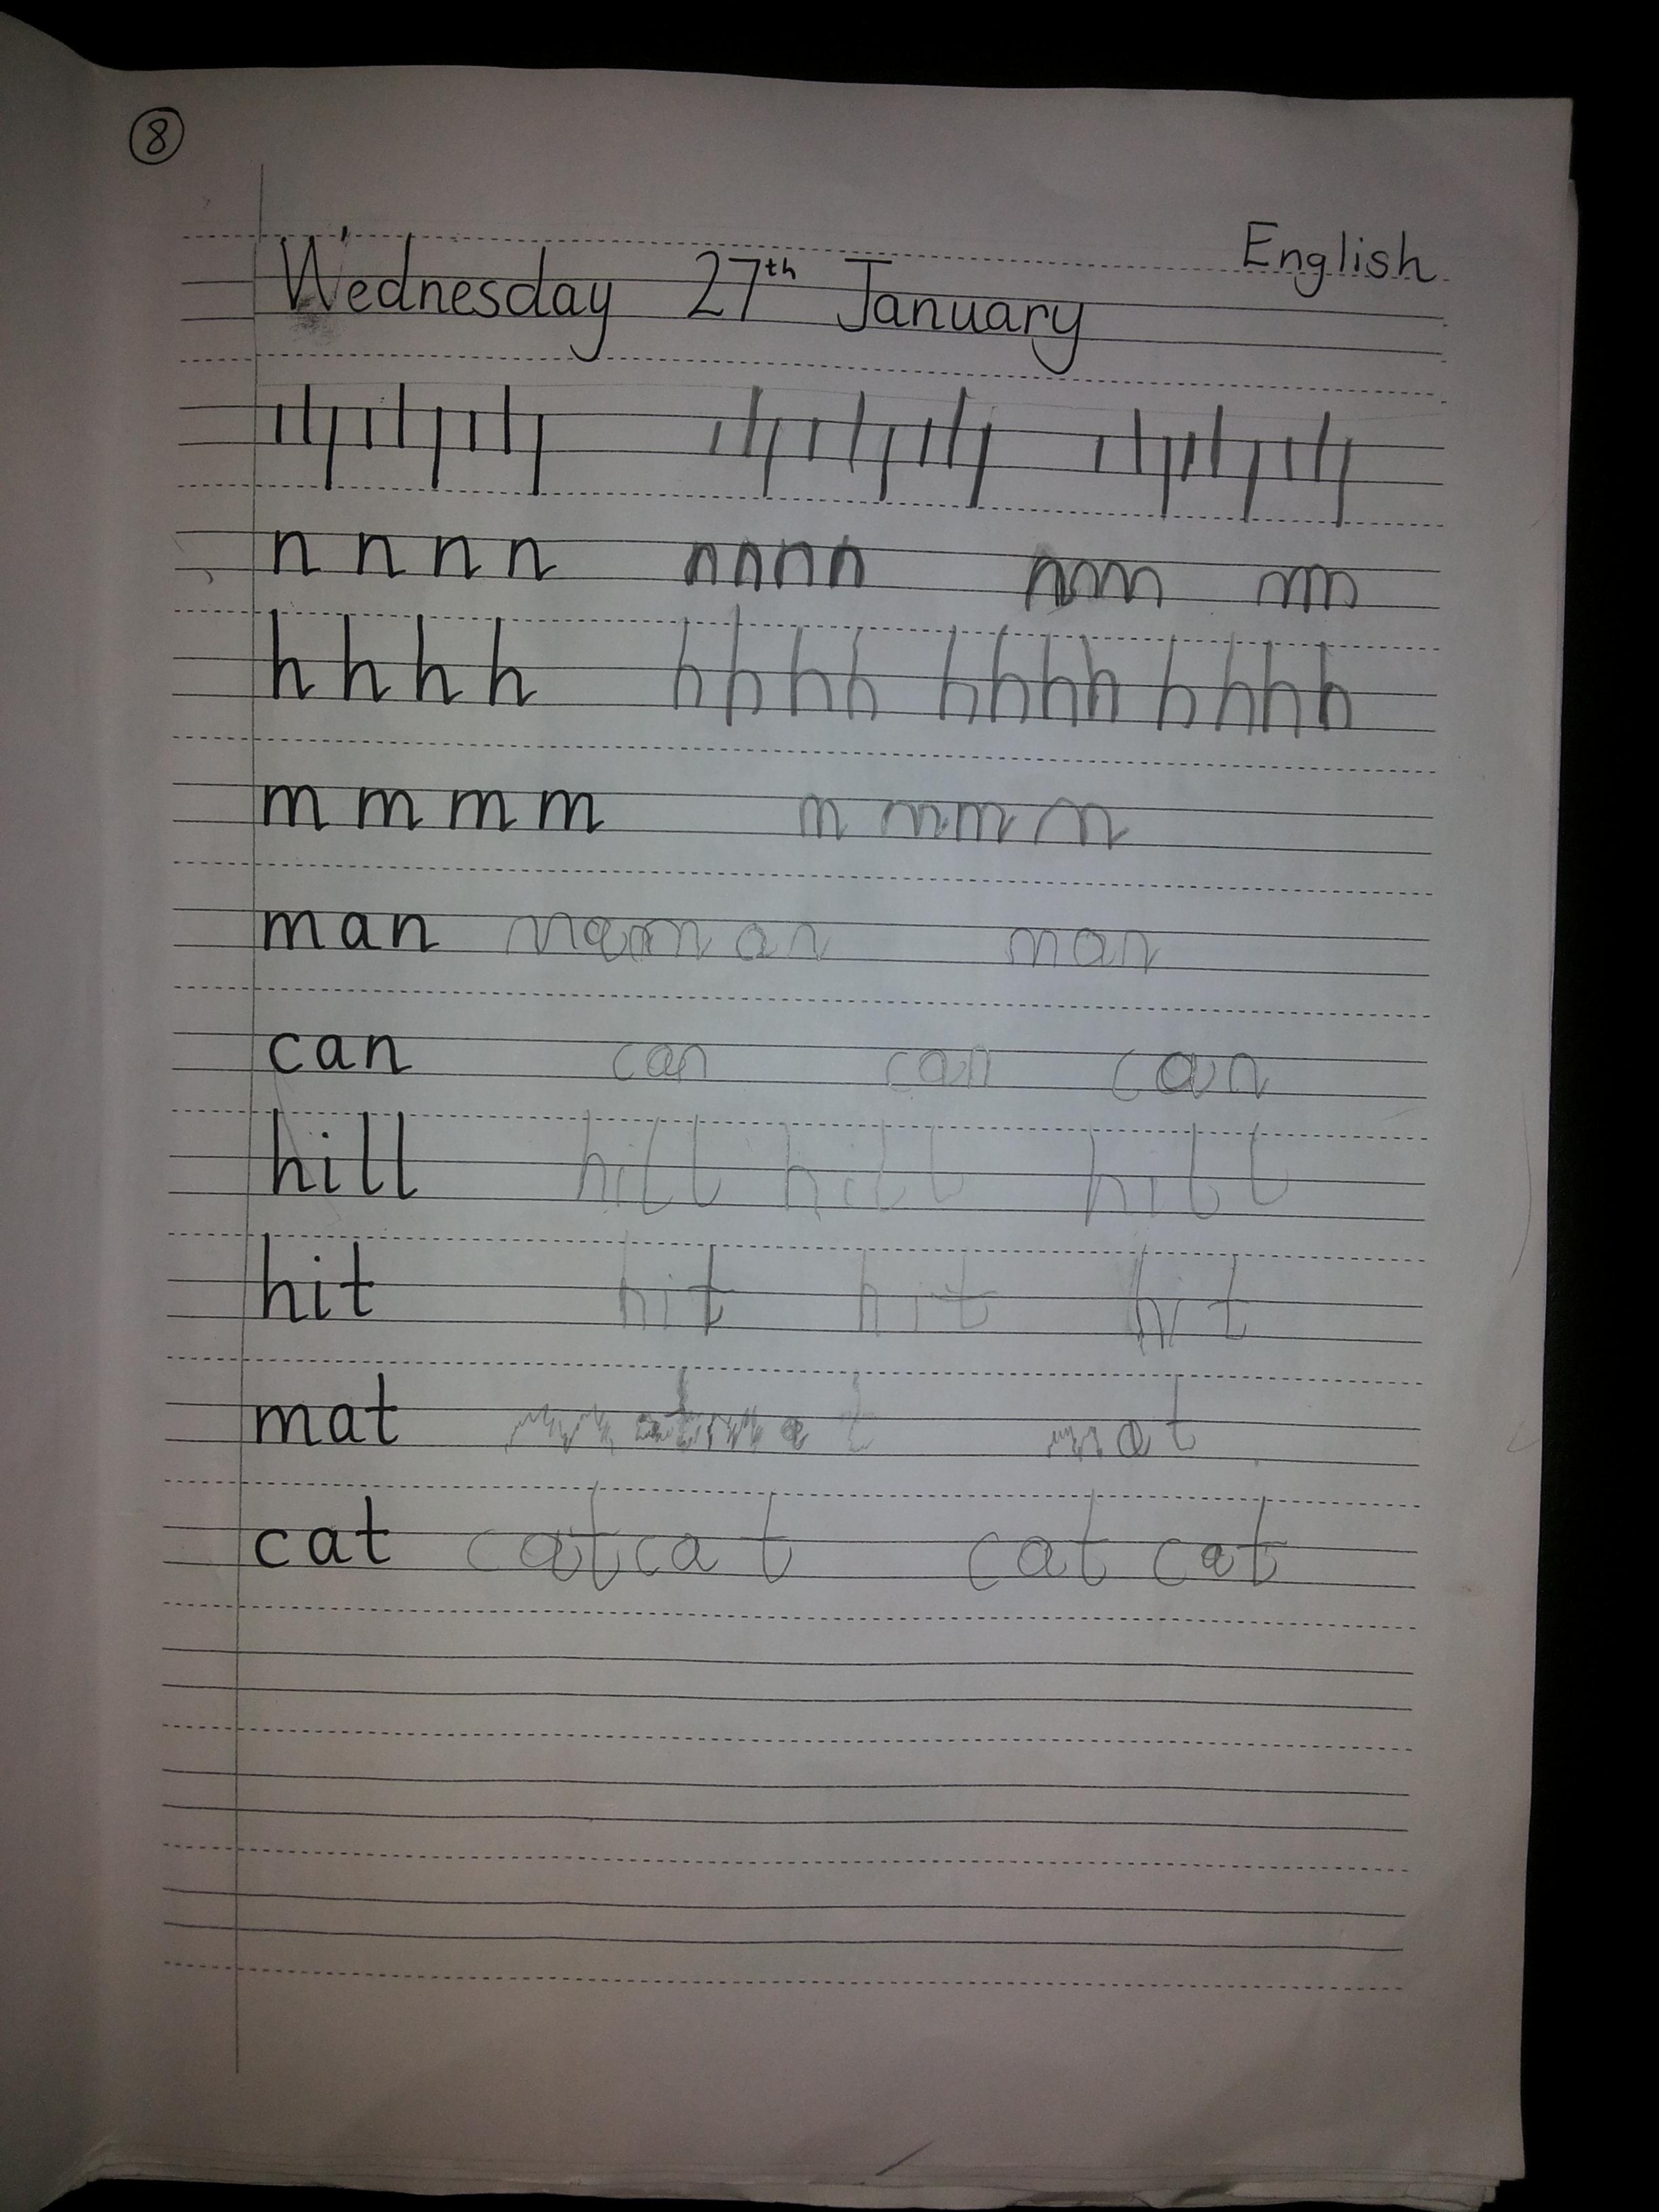 8
English
Wednesday 27th January
n n n n n n n n
h h h h h h h h h h h h h h h h
m m m m m m m m
man man man man
can can can can
hill hill hill hill
hit hit hit hit
mat mat mat mat
cat cat cat cat cat